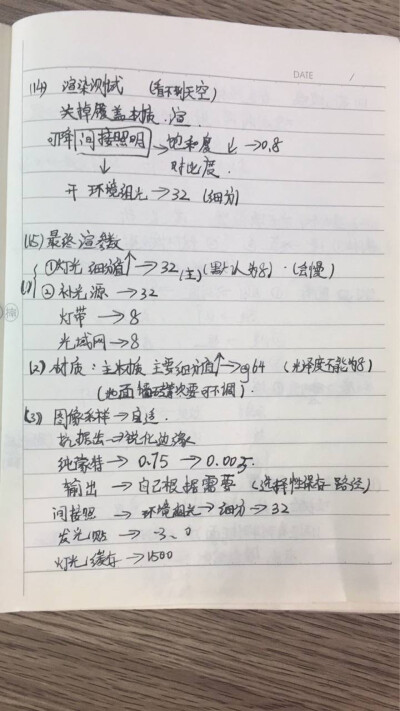 DATE /
(14) 渲染测试 (看不到天空)
关掉覆盖材质.渲.
可降 间接照明 → 饱和度 ↓ →0.8
对比度.
↓
开 环境阻光 →32 (细分)
(15) 最终渲参数
(1) { ①灯光 细分值↑ →32 (主) (默认为8) .(会慢)
②补光源 →32
灯带 →8
光域网 →8
(2) 材质: 主材质 主要细分值↑→eg 64 (光泽度不能为8)
(地面 墙 次要可不调).
(3) 图像采样→自适.
抗锯齿→锐化边缘
纯蒙特→ 0.75 → 0.005.
输出 →自己根据需要 (选择性保存 路径)
间接照 → 环境阻光→细分→32
发光贴 → -3、0
灯光缓存→1500